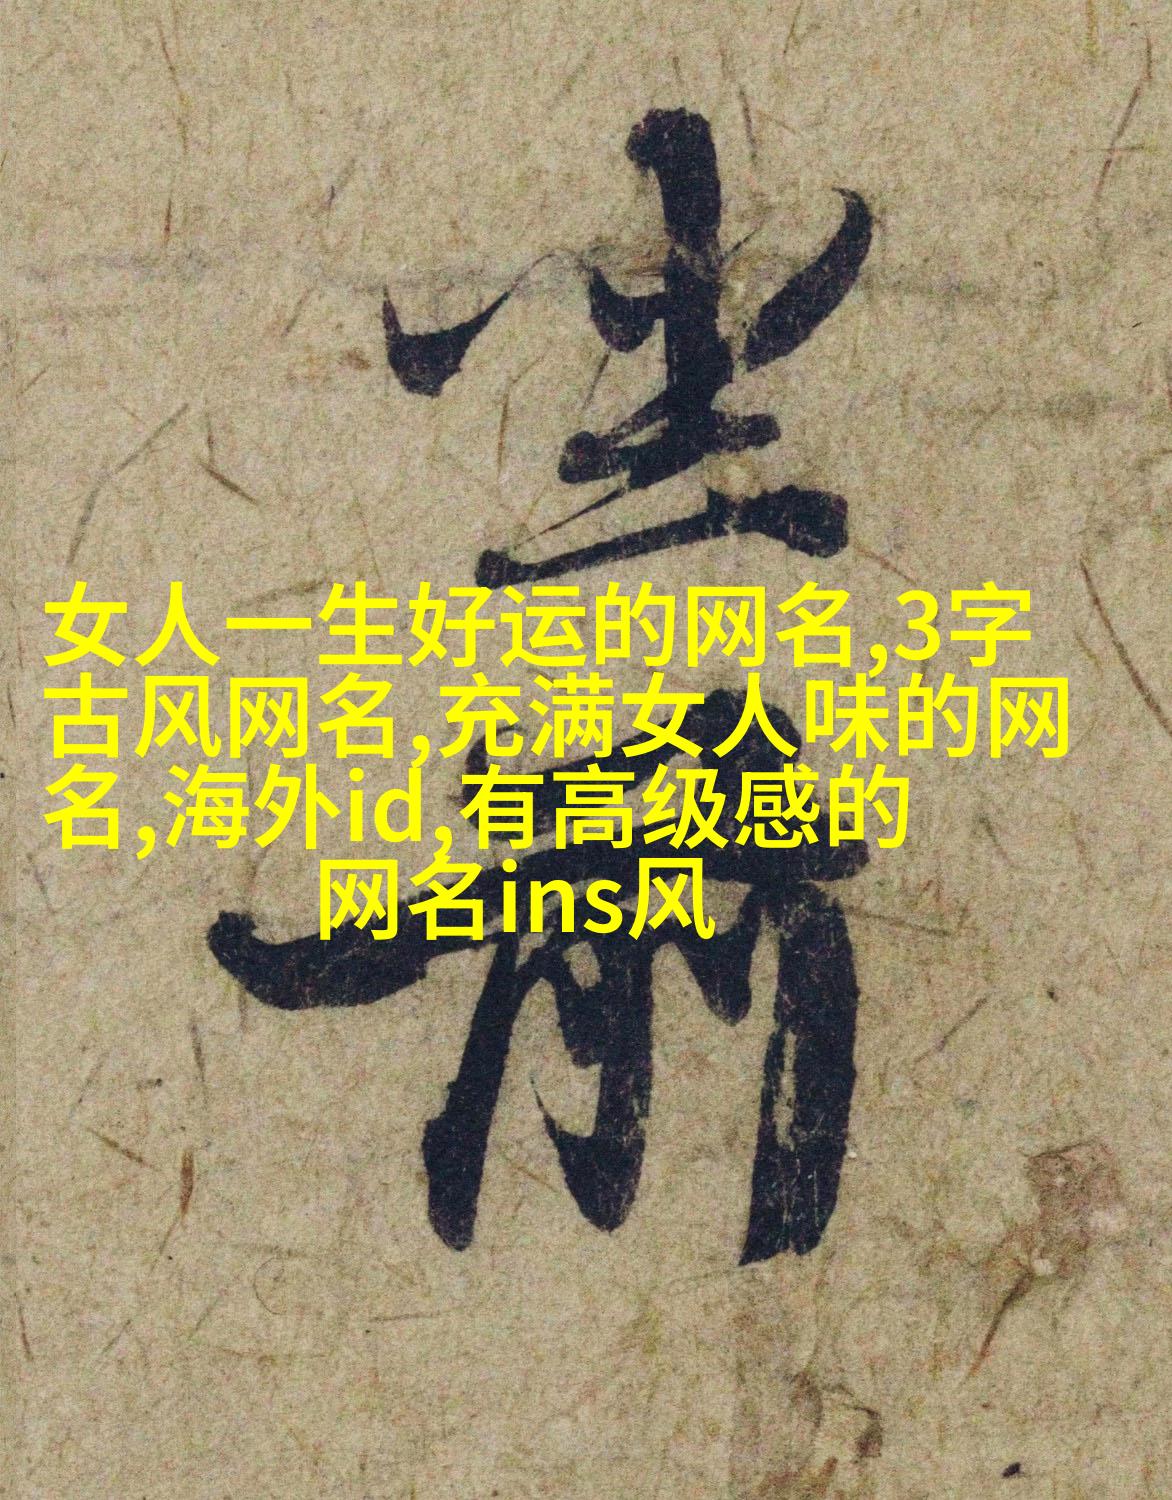 女人一生好运的网名,3字
古风网名,充满女人味的网
名,海外id,有高级感的
网名ins风